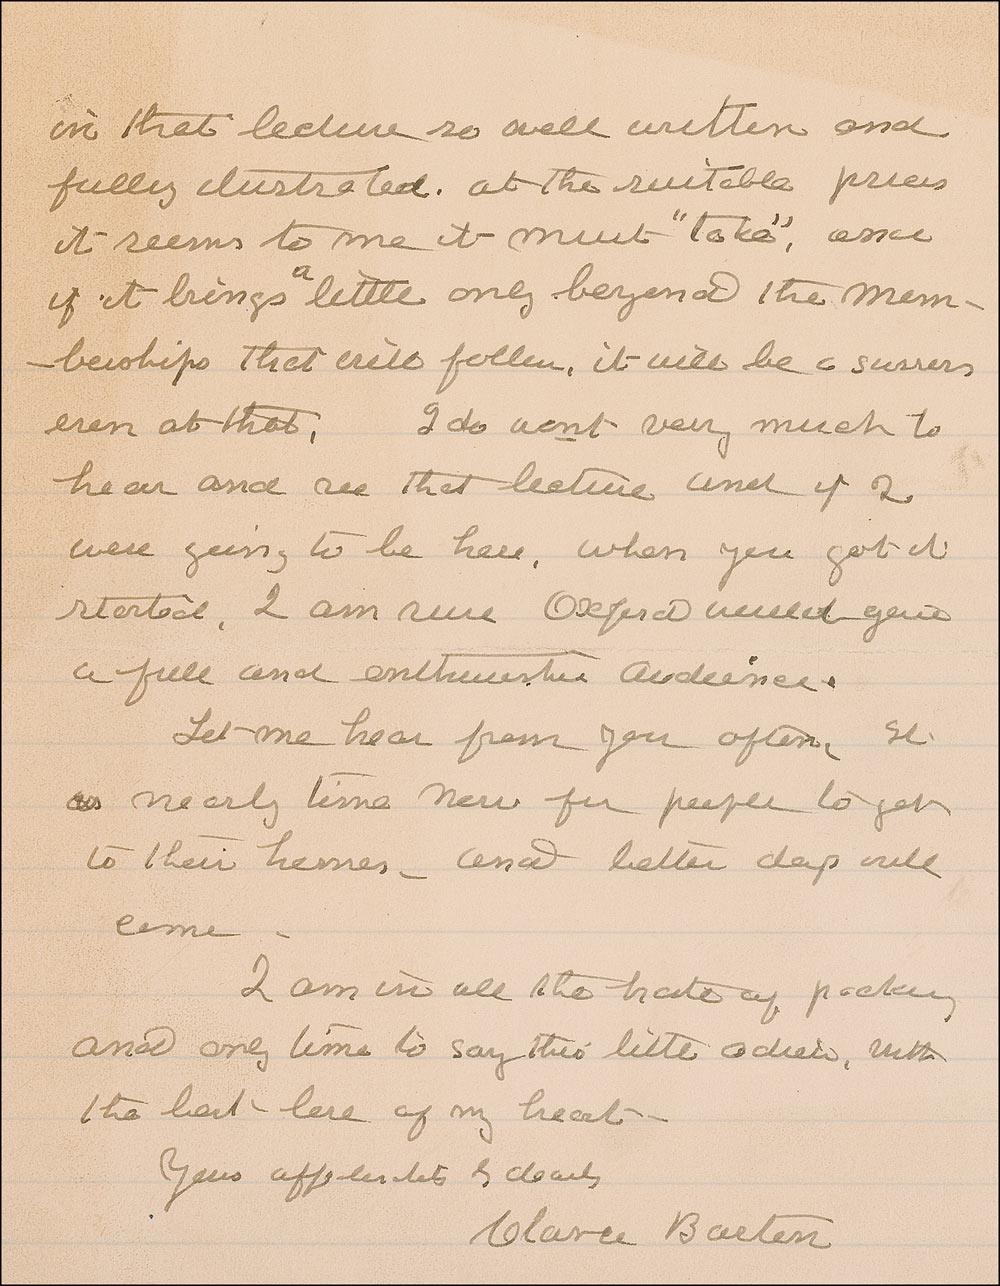 in that lecture so well written and
fully illustrated. at the suitable prices
it seems to me it must "take", and
if it brings a little only beyond the mem-
-berships that will follow, it will be a success
even at that. I do want very much to
hear and see that lecture and if I
were going to be here, when you got it
started, I am sure Oxford would give
a full and enthusiastic audience.
Let me hear from you often, It
is nearly time now for people to get
to their homes, and better days will
come -
I am in all the haste of packing
and only time to say this little adieu, with
the best love of my heart -
Yours affectionately & dearly
Clara Barton